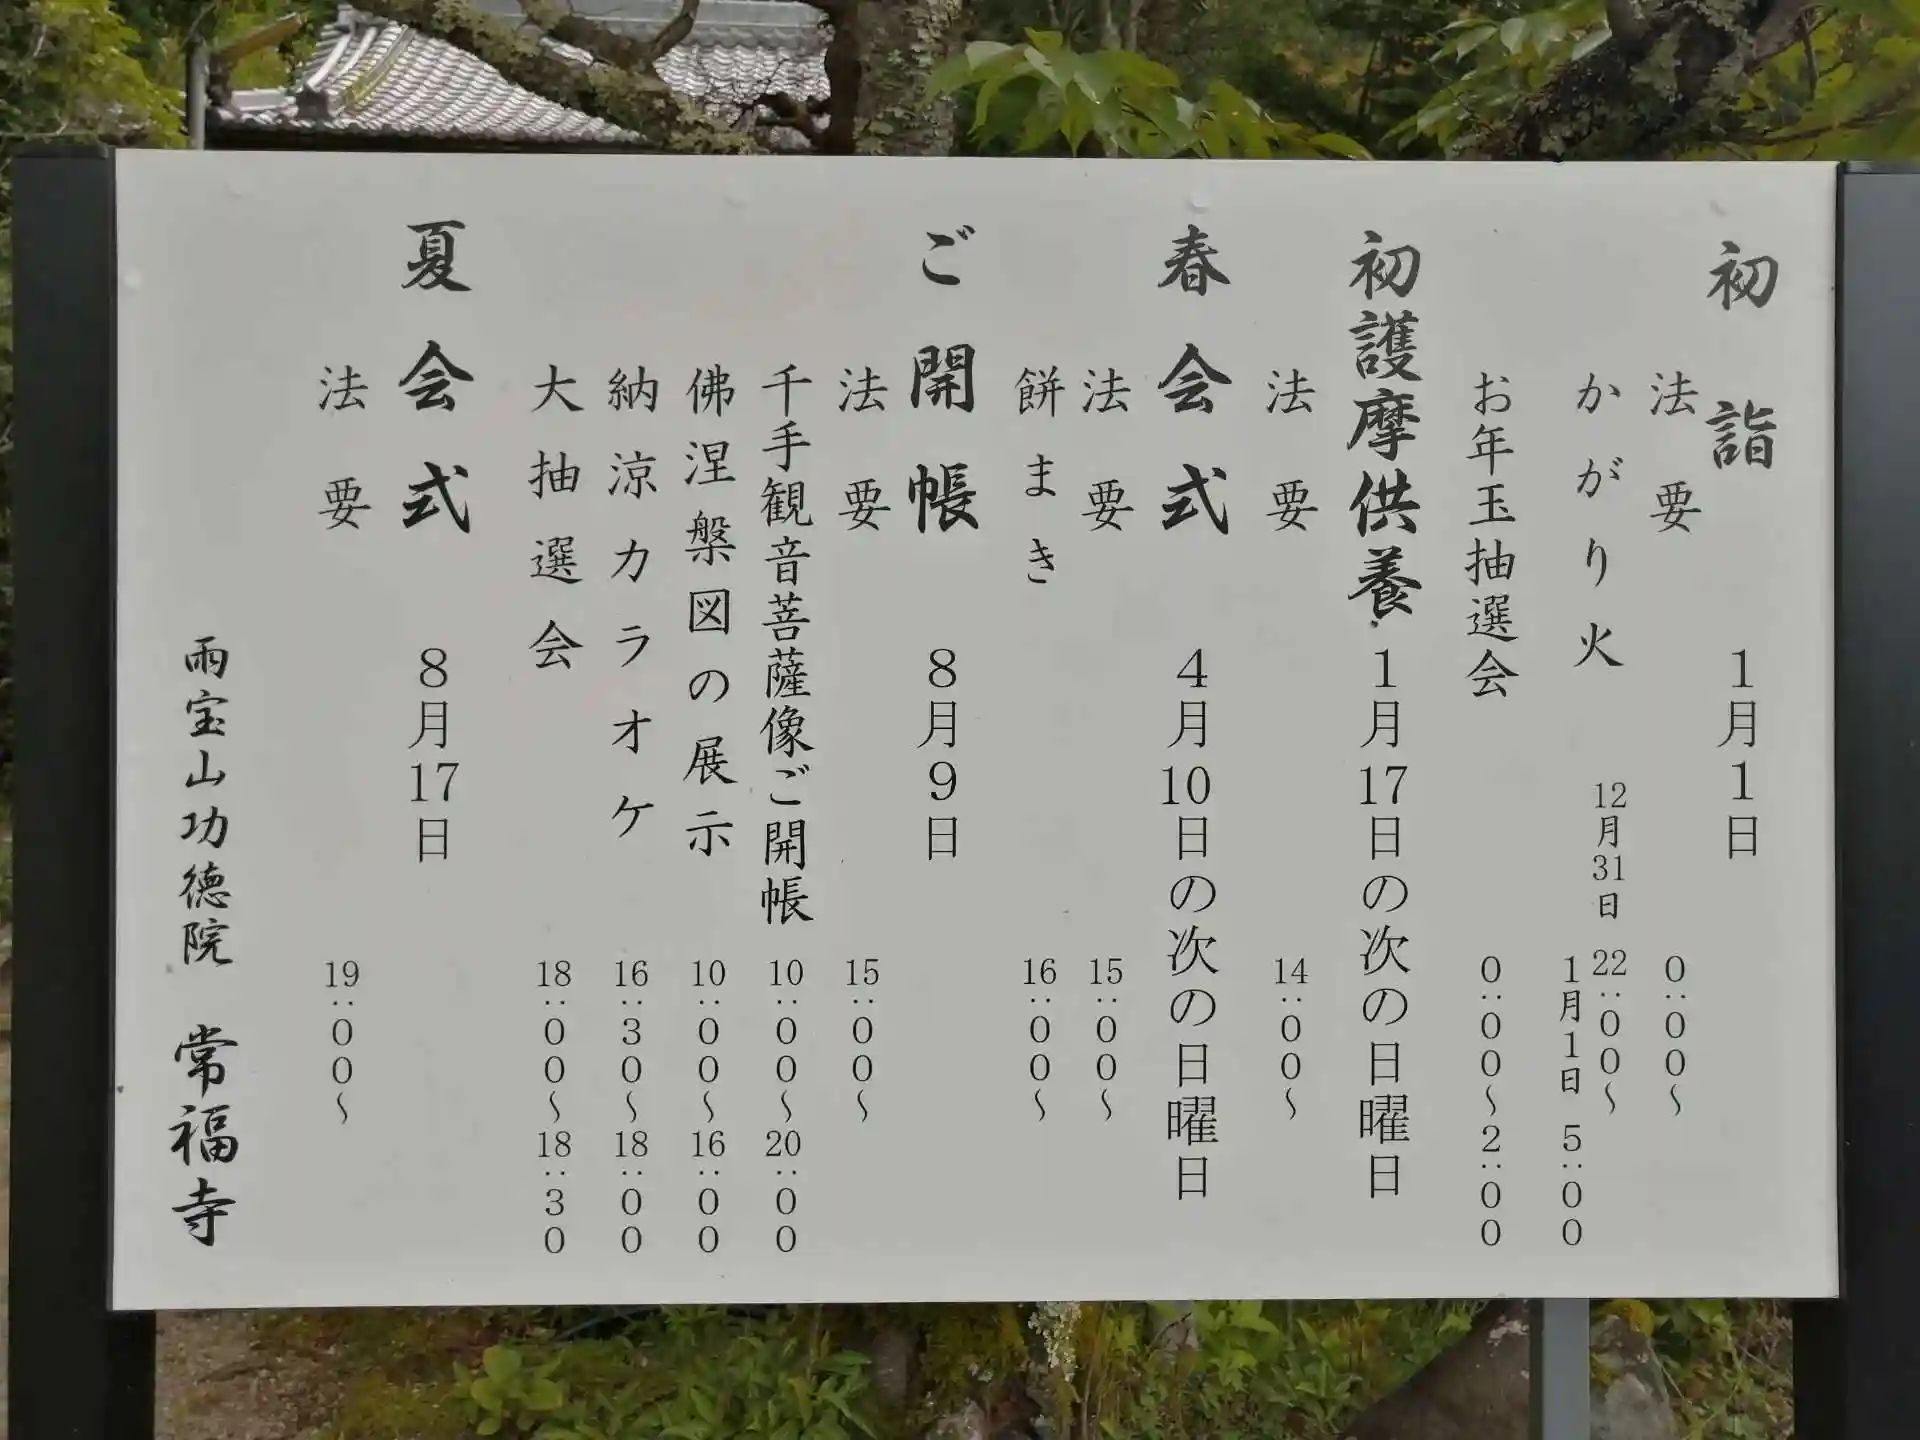 初詣 1月1日
法要 0:00〜
かがり火 12月31日 22:00〜
1月1日 5:00
お年玉抽選会 0:00〜2:00
初護摩供養 1月17日の次の日曜日
法要 14:00〜
春会式 4月10日の次の日曜日
法要 15:00〜
餅まき 16:00〜
ご開帳 8月9日
法要 15:00〜
千手観音菩薩像ご開帳 10:00〜20:00
佛涅槃図の展示 10:00〜16:00
納涼カラオケ 16:30〜18:00
大抽選会 18:00〜18:30
夏会式 8月17日
法要 19:00〜
雨宝山功徳院 常福寺